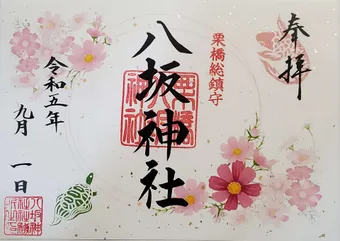 奉拝
栗橋総鎮守
八坂神社
令和五年
九月 一日